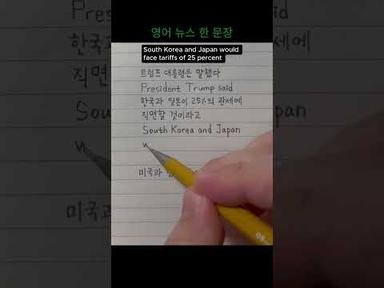 영어 뉴스 한 문장
South Korea and Japan would
face tariffs of 25 percent
트럼프 대통령은 말했다
President Trump said
한국과 일본이 25%의 관세에
직면할 것이라고
South Korea and Japan
w
미국과